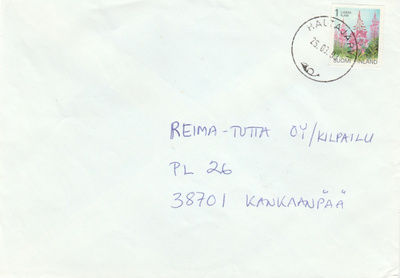 1 LUOKKA
KLASS
HALTA
25.03.
SUOMI FINLAND
REIMA-TUTTA OY/KILPAILU
PL 26
38701 KANKAANPÄÄ